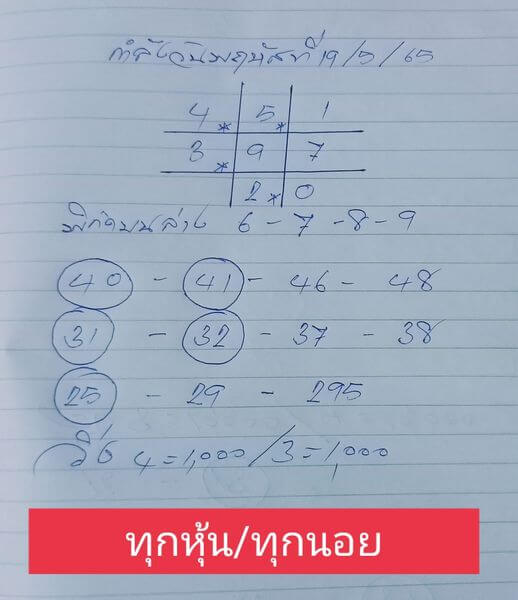 กำลังวันพฤหัสที่ 19/5/65
4* 5* 1
3* 9 7
2* 0
พิกัดบนล่าง 6-7-8-9
40 - 41 - 46 - 48
31 - 32 - 37 - 38
25 - 29 - 295
วิ่ง 4=1,000/3=1,000
ทุกหุ้น/ทุกนอย